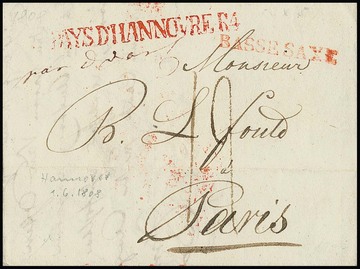 PAYS D'HANNOVRE R4
BASSE SAXE
Monsieur
B. L. Fould
à
Paris
Hannover
1.6.1808